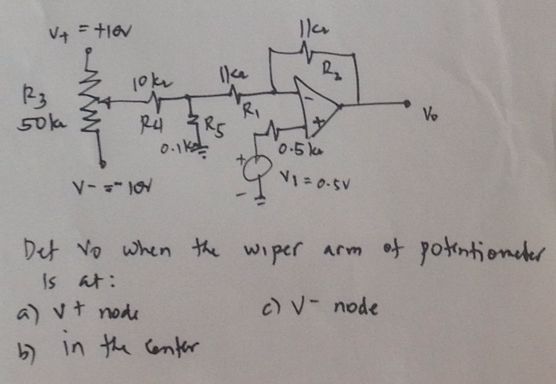 V+ = +10V
11kΩ
R2
R3
50kΩ
10kΩ
R4
11kΩ
R1
R5
0.1kΩ
-
+
0.5kΩ
Vo
+
-
V1 = 0.5V
V- = -10V
Det Vo when the wiper arm of potentiometer
is at:
a) V+ node
c) V- node
b) in the center